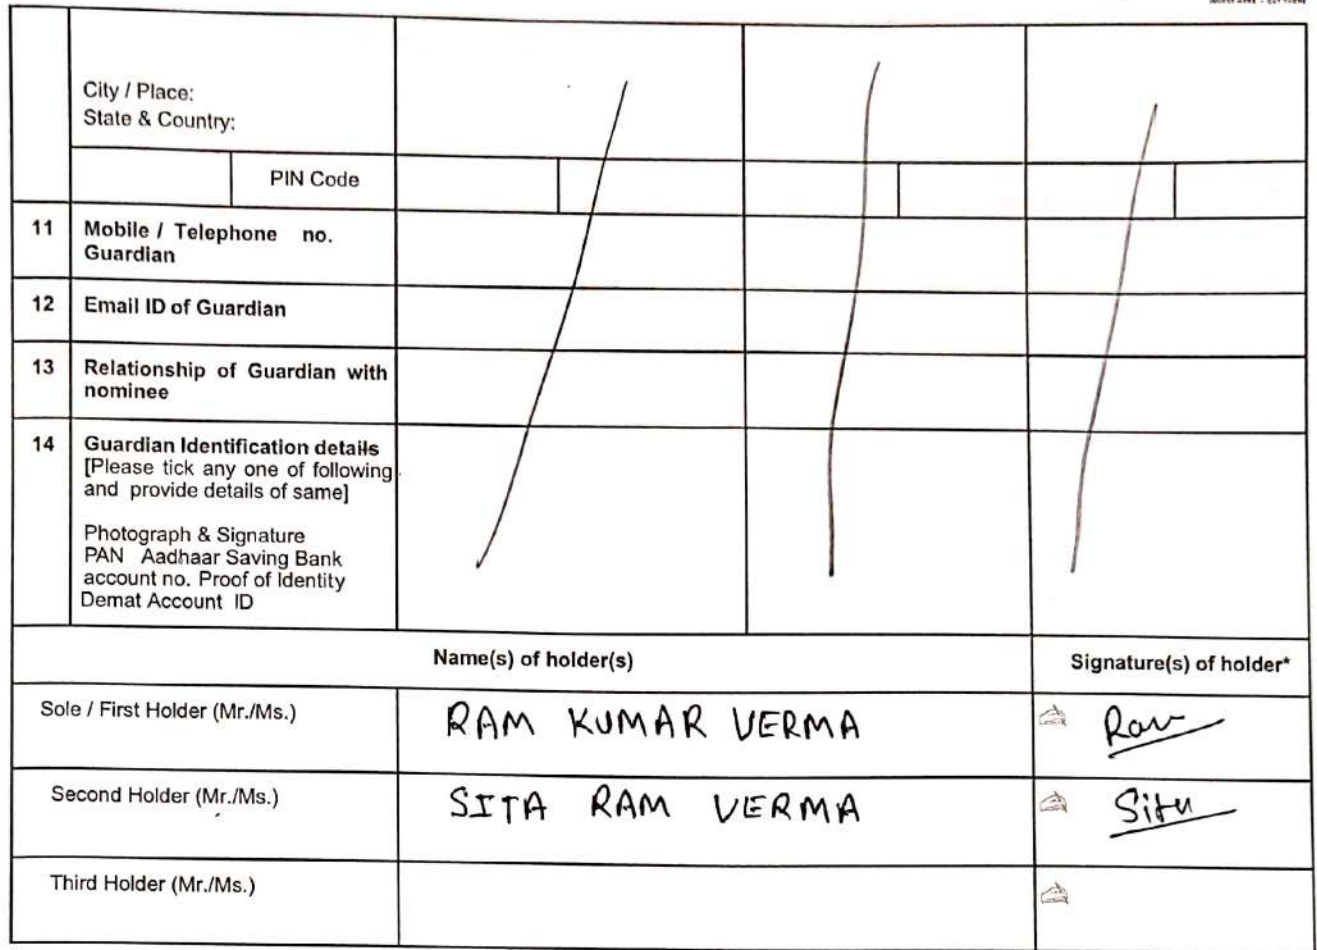 City / Place:
State & Country:
PIN Code
11 Mobile / Telephone no.
Guardian
12 Email ID of Guardian
13 Relationship of Guardian with
nominee
14 Guardian Identification details
[Please tick any one of following
and provide details of same]
Photograph & Signature
PAN Aadhaar Saving Bank
account no. Proof of Identity
Demat Account ID
Name(s) of holder(s) Signature(s) of holder*
Sole / First Holder (Mr./Ms.) RAM KUMAR VERMA Ram
Second Holder (Mr./Ms.) SITA RAM VERMA Sita
Third Holder (Mr./Ms.)